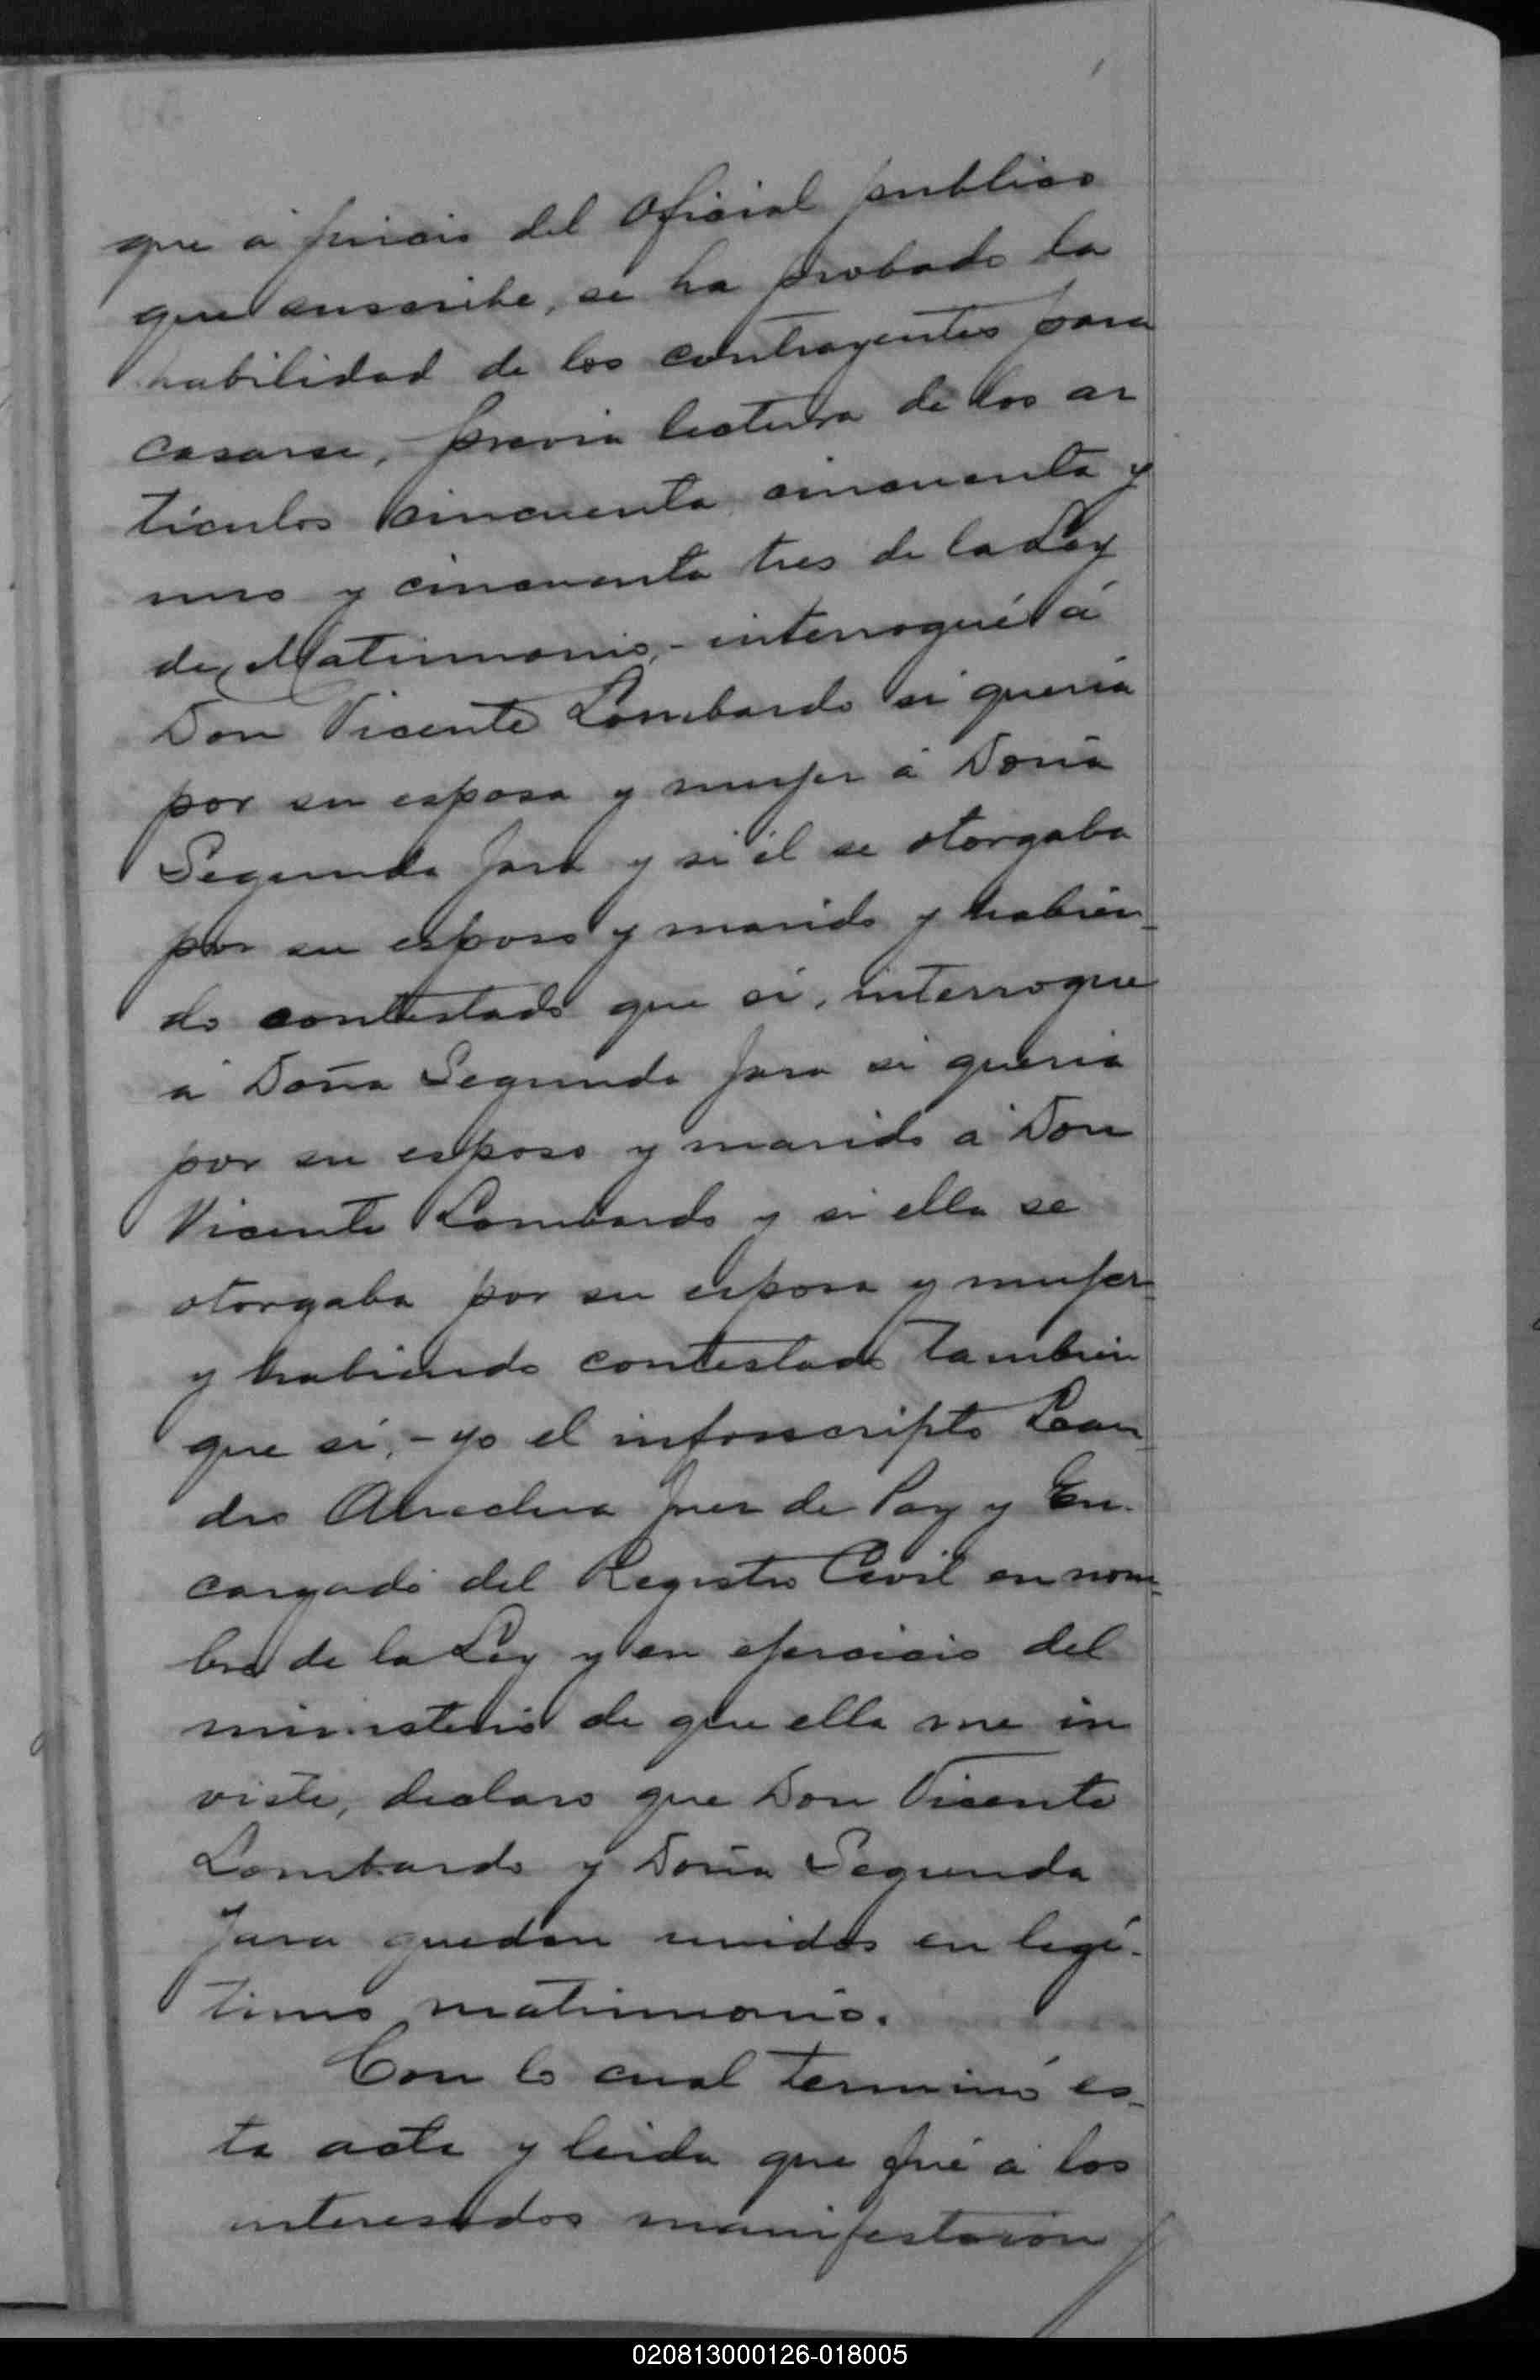 que á juicio del Oficial publico
que suscribe, se ha probado la
habilidad de los contrayentes para
casarse, previa lectura de los ar
tículos cincuenta, cincuenta y
uno y cincuenta tres de la Ley
de Matrimonio, - interrogué á
Don Vicente Lombardo si queria
por su esposa y mujer á Doña
Segunda Jara y si él se otorgaba
por su esposo y marido y habien-
do contestado que si, interrogue
á Doña Segunda Jara si queria
por su esposo y marido á Don
Vicente Lombardo y si ella se
otorgaba por su esposa y mujer
y habiendo contestado tambien
que si, - yo el infrascripto Lean
dro Juez de Paz y En-
cargado del Registro Civil en nom-
bre de la Ley y en ejercicio del
ministerio de que ella me in
viste, declaro que Don Vicente
Lombardo y Doña Segunda
Jara quedan unidos en legí-
timo matrimonio.
Con lo cual terminó es-
ta acta y leida que fué á los
interesados manifestaron
020813000126-018005